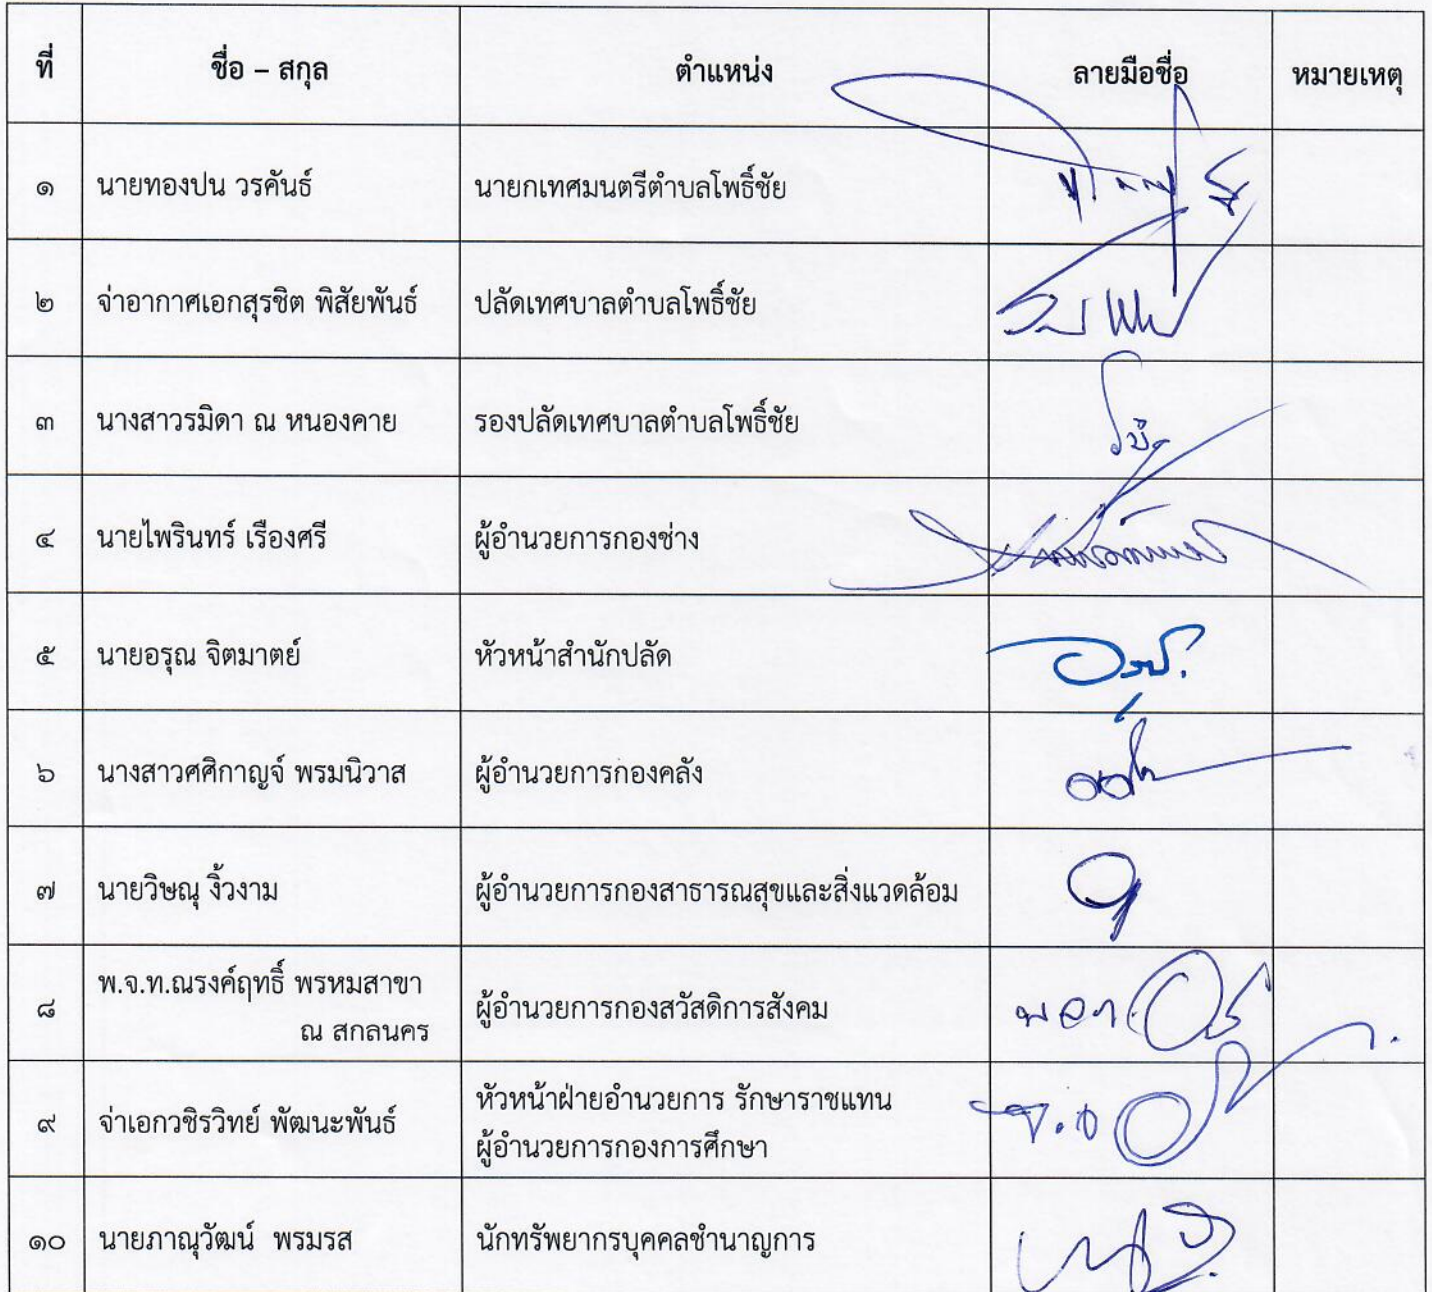 ที่ ชื่อ – สกุล ตำแหน่ง ลายมือชื่อ หมายเหตุ
๑ นายทองปน วรคันธ์ นายกเทศมนตรีตำบลโพธิ์ชัย
๒ จ่าอากาศเอกสุรชิต พิสัยพันธ์ ปลัดเทศบาลตำบลโพธิ์ชัย
๓ นางสาวรมิดา ณ หนองคาย รองปลัดเทศบาลตำบลโพธิ์ชัย
๔ นายไพรินทร์ เรืองศรี ผู้อำนวยการกองช่าง
๕ นายอรุณ จิตมาตย์ หัวหน้าสำนักปลัด
๖ นางสาวศศิกาญจ์ พรมนิวาส ผู้อำนวยการกองคลัง
๗ นายวิษณุ งิ้วงาม ผู้อำนวยการกองสาธารณสุขและสิ่งแวดล้อม
๘ พ.จ.ท.ณรงค์ฤทธิ์ พรหมสาขา
ณ สกลนคร ผู้อำนวยการกองสวัสดิการสังคม
๙ จ่าเอกวชิรวิทย์ พัฒนะพันธ์ หัวหน้าฝ่ายอำนวยการ รักษาราชแทน
ผู้อำนวยการกองการศึกษา
๑๐ นายภาณุวัฒน์ พรมรส นักทรัพยากรบุคคลชำนาญการ